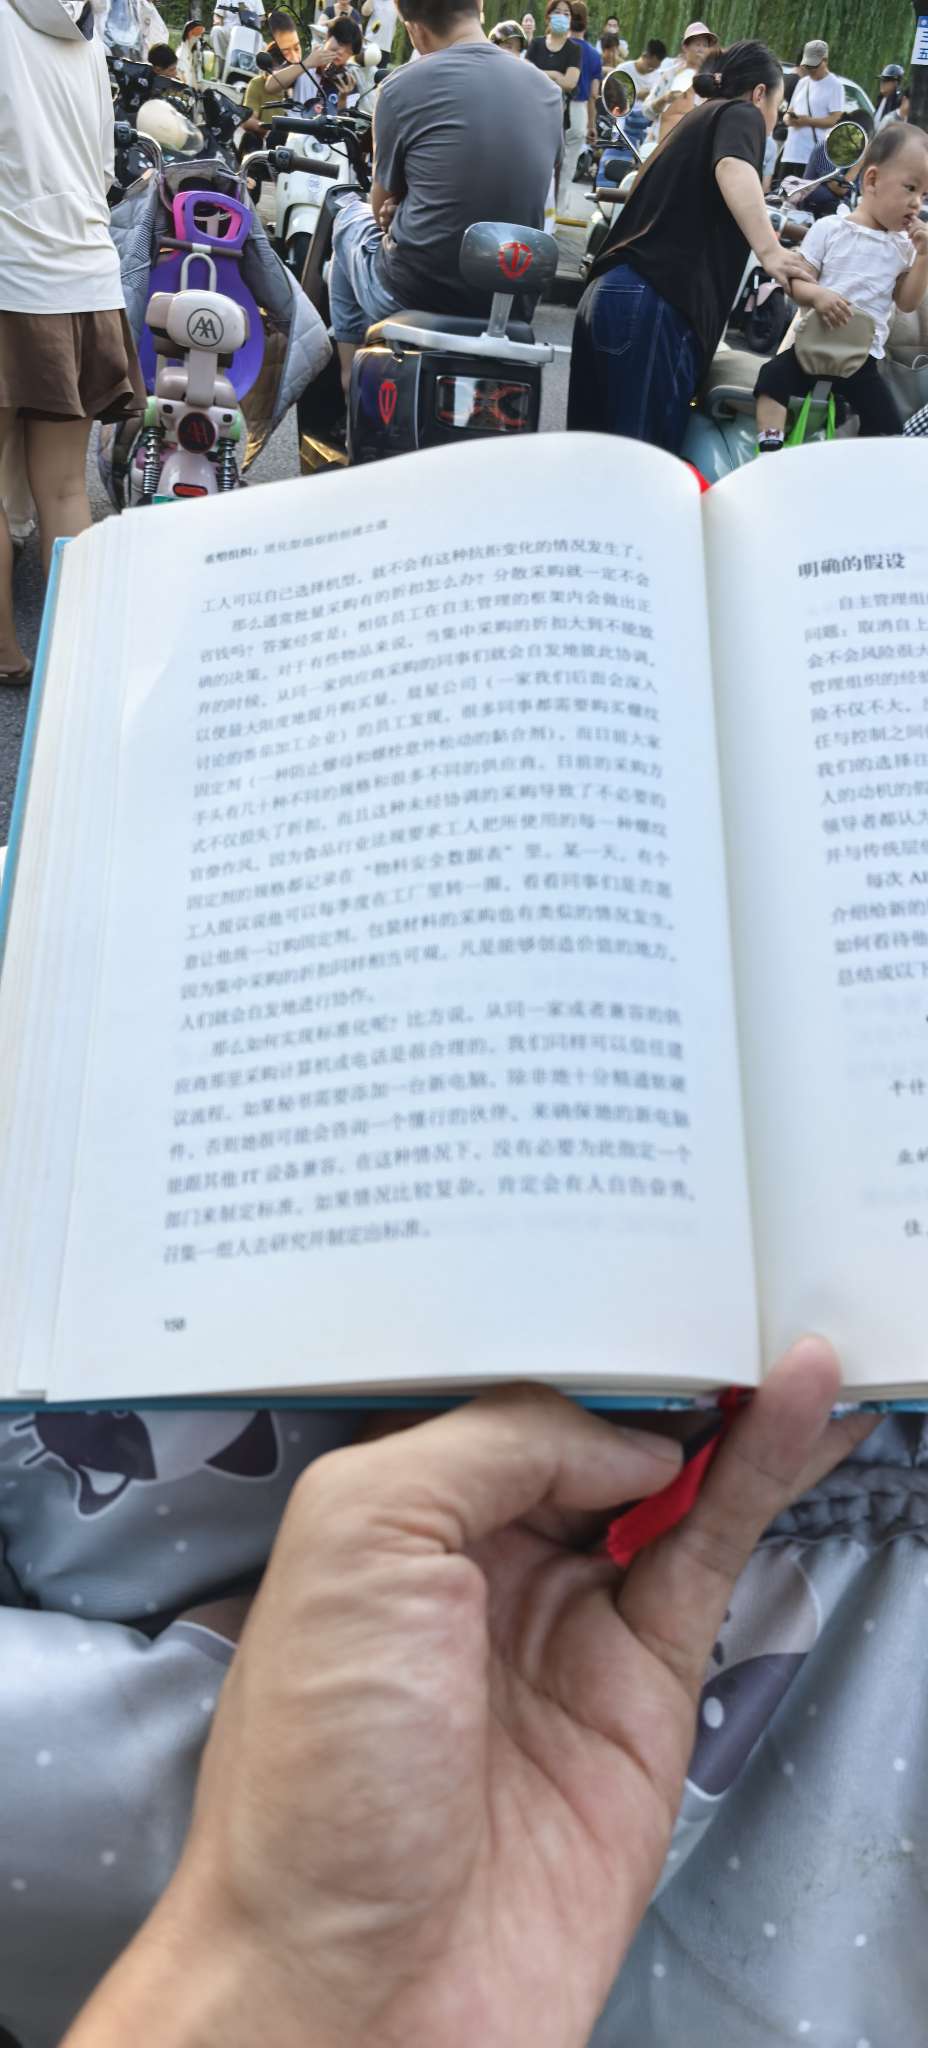 重塑组织：进化型组织的创建之道
工人可以自己选择机型，就不会有这种抗拒变化的情况发生了。
那么通常批量采购有的折扣怎么办？分散采购就一定不会
省钱吗？答案经常是：相信员工在自主管理的框架内会做出正
确的决策。对于有些物品来说，当集中采购的折扣大到不能放
弃的时候，从同一家供应商采购的同事们就会自发地彼此协调，
以便最大限度地提升购买量。晨星公司（一家我们后面会深入
讨论的番茄加工企业）的员工发现，很多同事都需要购买螺纹
固定剂（一种防止螺母和螺栓意外松动的黏合剂），而目前大家
手头有几十种不同的规格和很多不同的供应商。目前的采购方
式不仅损失了折扣，而且这种未经协调的采购导致了不必要的
官僚作风，因为食品行业法规要求工人把所使用的每一种螺纹
固定剂的规格都记录在“物料安全数据表”里。某一天，有个
工人提议说他可以每季度在工厂里转一圈，看看同事们是否愿
意让他统一订购固定剂。包装材料的采购也有类似的情况发生，
因为集中采购的折扣同样相当可观。凡是能够创造价值的地方，
人们就会自发地进行协作。
那么如何实现标准化呢？比方说，从同一家或者兼容的供
应商那里采购计算机或电话是很合理的。我们同样可以信任建
议流程。如果秘书需要添加一台新电脑，除非她十分精通软硬
件，否则她很可能会咨询一个懂行的伙伴，来确保她的新电脑
能跟其他 IT 设备兼容。在这种情况下，没有必要为此指定一个
部门来制定标准。如果情况比较复杂，肯定会有人自告奋勇，
召集一组人去研究并制定出标准。
150
明确的假设
自主管理组
问题：取消自上
会不会风险很大
管理组织的经验
险不仅不大，
任与控制之间
我们的选择往
人的动机的假
领导者都认为
并与传统层级
每次 AE
介绍给新的
如何看待他
总结成以下
干什
业的
佳，
三
五